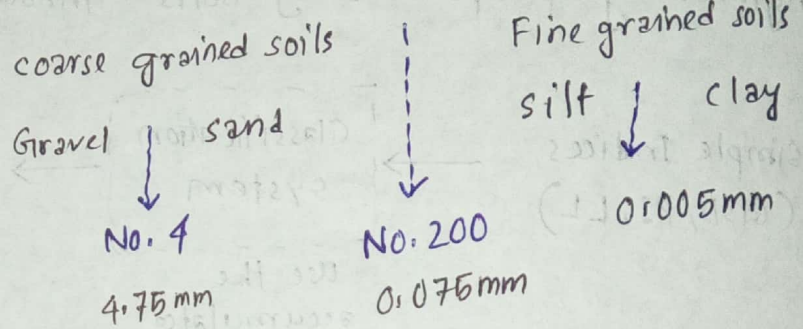 coarse grained soils
Fine grained soils
Gravel sand
silt clay
No. 4
No. 200
0.005mm
4.75mm
0.075mm